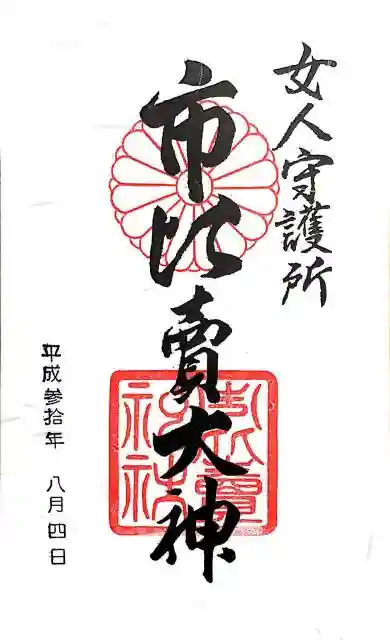 女人守護所
市比賣大神
市比賣神社
平成参拾年 八月四日